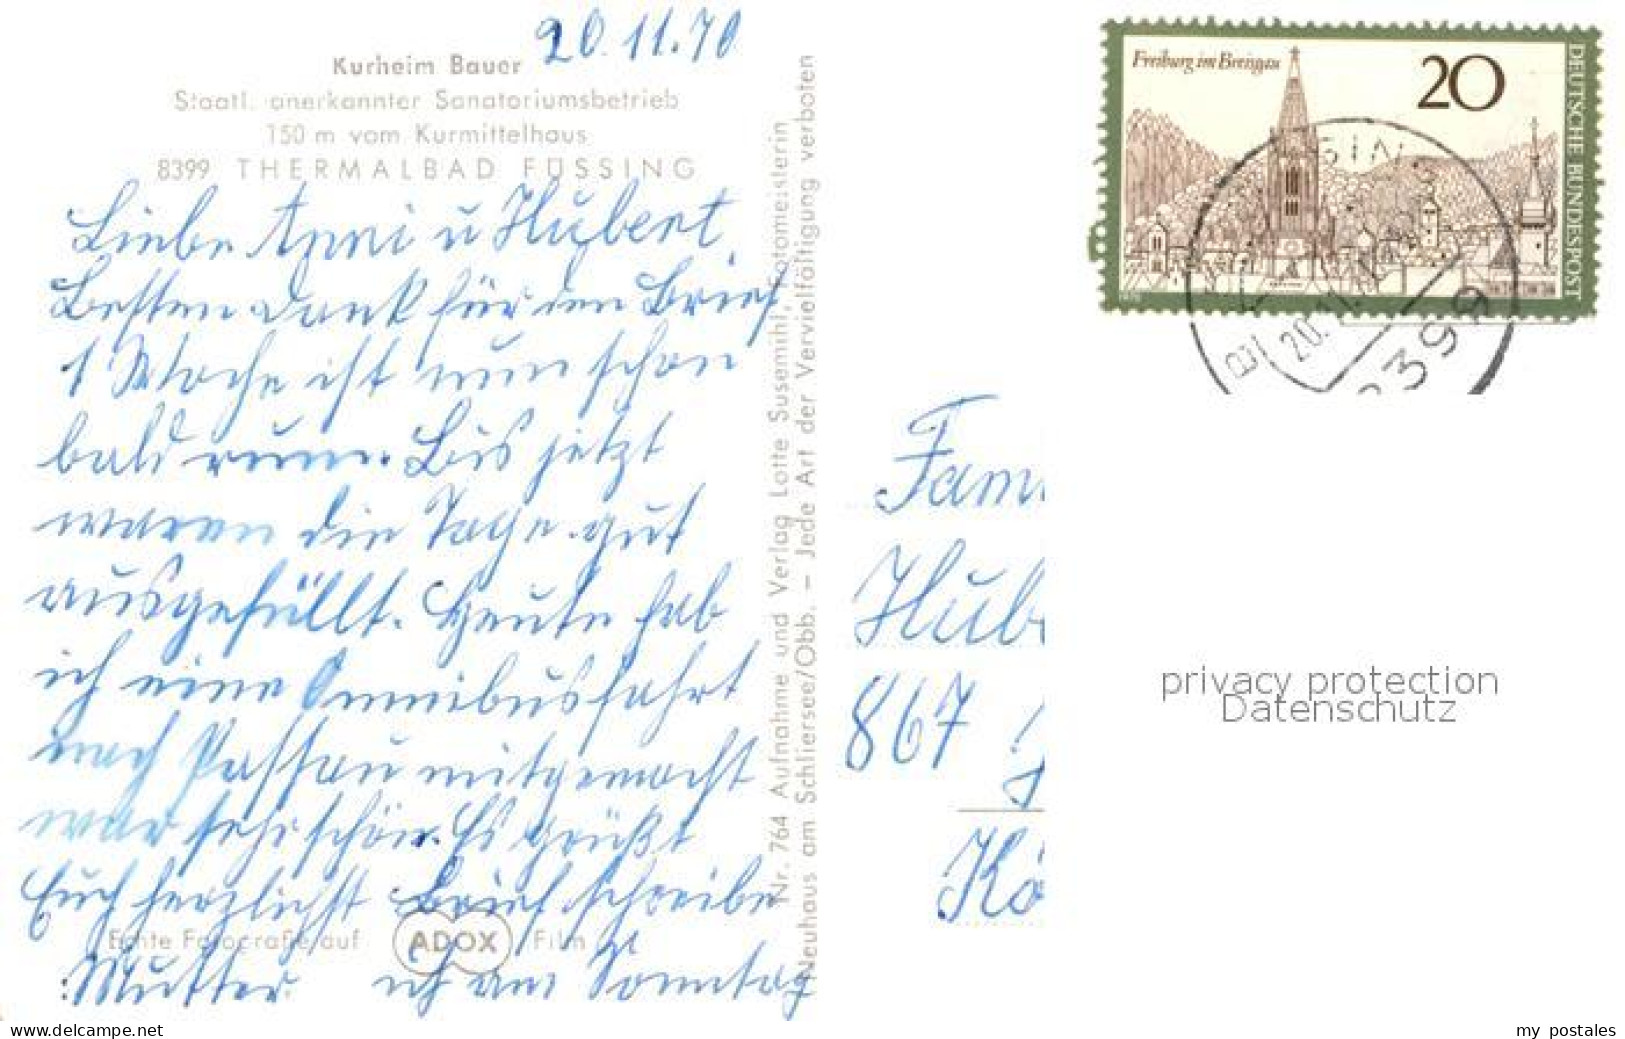 20.11.70
Kurheim Bauer
Staatl. anerkannter Sanatoriumsbetrieb
150 m vom Kurmittelhaus
8399 THERMALBAD FÜSSING
Liebe Anni u Hubert
Besten Dank für den Brief
1 Woche ist nun schon
bald rum. Bis jetzt
waren die Tage gut
ausgefüllt. Heute hab
ich eine Omnibusfahrt
nach Passau mitgemacht
war sehr schön. Es grüßt
Euch herzlichst Brief schreibe
Echte Fotografie auf ADOX Film
Mutter ich am Sonntag
Nr. 764 Aufnahme und Verlag Lotte Susemihl, Fotomeisterin
Neuhaus am Schliersee/Obb. – Jede Art der Vervielfältigung verboten
Freiburg im Breisgau
20
DEUTSCHE BUNDESPOST
20.11.
8399
Fam
Hub
867
Kö
privacy protection
Datenschutz
www.delcampe.net
my postales